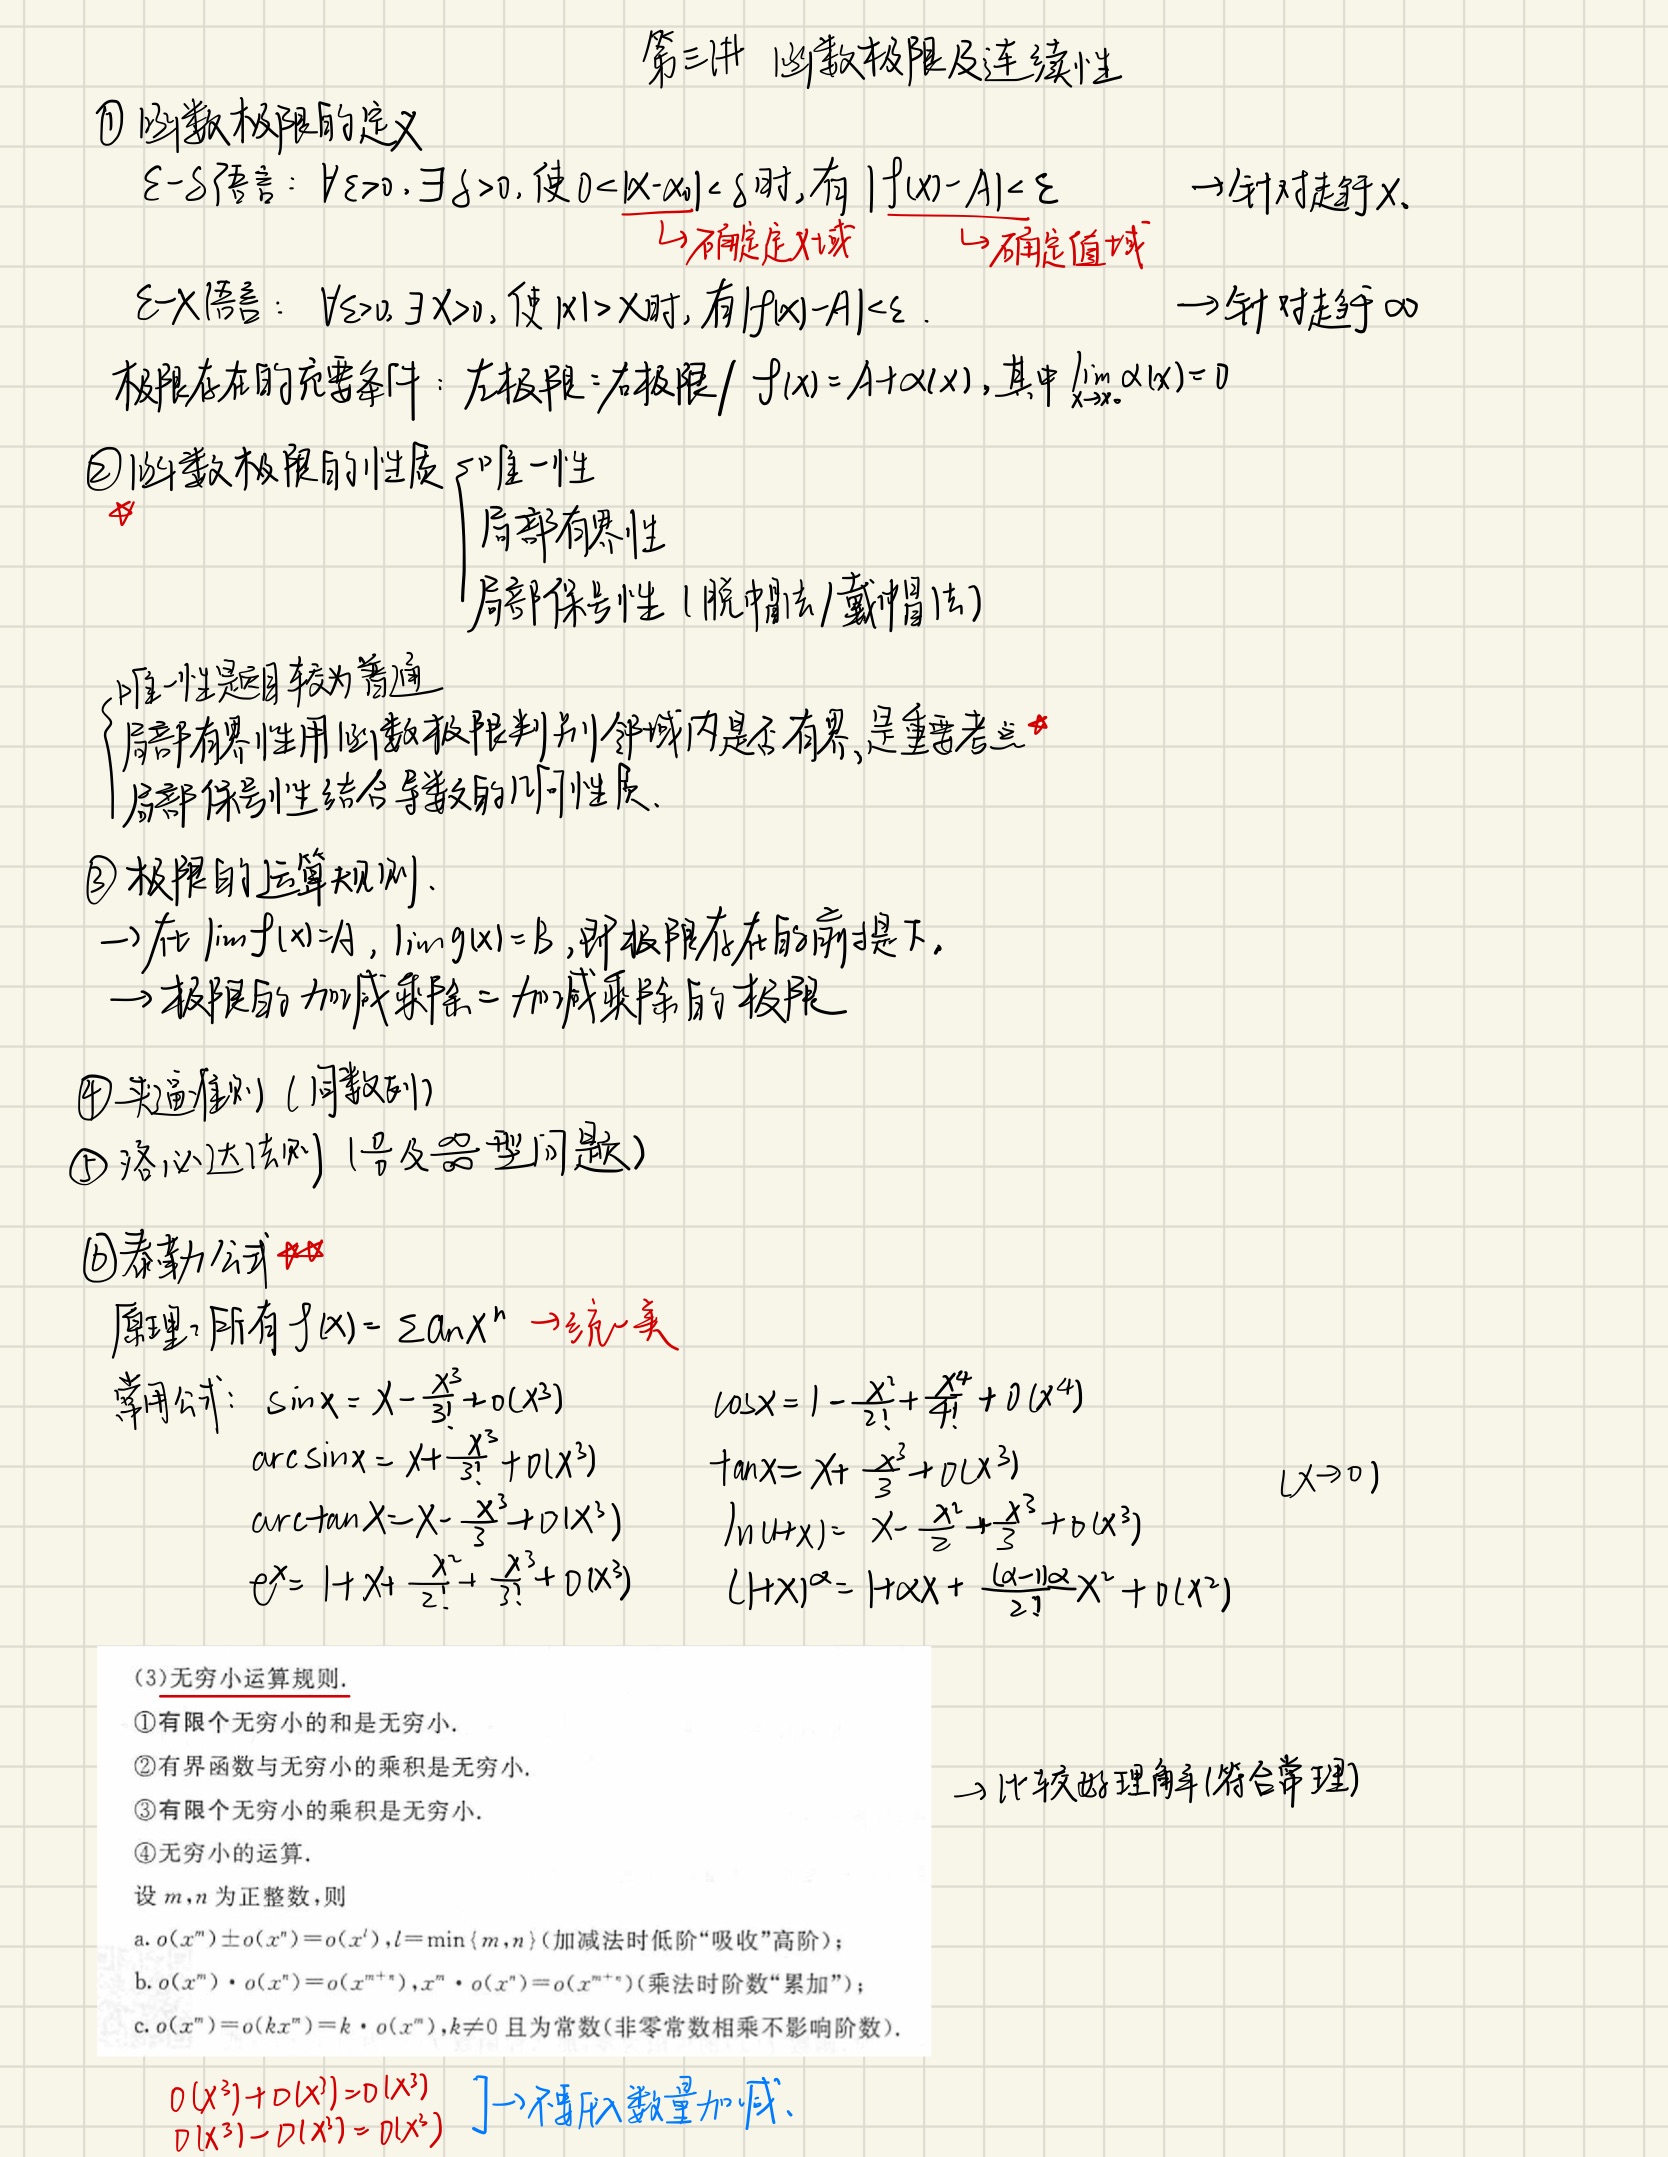 第三讲 函数极限及连续性
① 函数极限的定义
ε-δ语言: ∀ε>0, ∃δ>0, 使0<|x-x₀|<δ时, 有|f(x)-A|<ε →针对走趋于x.
↳确定定义域 ↳确定值域
ε-X语言: ∀ε>0, ∃X>0, 使|x|>X时, 有|f(x)-A|<ε. →针对走趋于∞
极限存在的充要条件: 左极限=右极限/ f(x)=A+α(x), 其中 lim_{x→x₀} α(x)=0
②函数极限的性质 { 唯一性
☆
局部有界性
局部保号性 (脱帽法/戴帽法)
{ 唯一性题目较为普通
局部有界性用函数极限判别邻域内是否有界, 是重要考点☆
局部保号性结合导数的几何性质.
③ 极限的运算规则.
→在 lim f(x)=A, lim g(x)=B, 即极限存在的前提下.
→极限的加减乘除=加减乘除的极限
④ 夹逼准则 (同数列)
⑤ 洛必达法则 (0/0及∞/∞型问题)
⑥泰勒公式☆☆
原理: 所有f(x)=Σaₙxⁿ →统一美
常用公式: sinx=x-x³/3!+o(x³) cosx=1-x²/2!+x⁴/4!+o(x⁴)
arcsinx=x+x³/3!+o(x³) tanx=x+x³/3+o(x³) (x→0)
arctanx=x-x³/3+o(x³) ln(1+x)=x-x²/2+x³/3+o(x³)
eˣ=1+x+x²/2!+x³/3!+o(x³) (1+x)^α=1+αx+(α-1)α/2! x²+o(x²)
(3)无穷小运算规则.
①有限个无穷小的和是无穷小.
②有界函数与无穷小的乘积是无穷小.
→比较好理解(符合常理)
③有限个无穷小的乘积是无穷小.
④无穷小的运算.
设 m,n 为正整数,则
a. o(xᵐ)±o(xⁿ)=o(xˡ),l=min{m,n}(加减法时低阶“吸收”高阶);
b. o(xᵐ)·o(xⁿ)=o(xᵐ⁺ⁿ),xᵐ·o(xⁿ)=o(xᵐ⁺ⁿ)(乘法时阶数“累加”);
c. o(xᵐ)=o(kxᵐ)=k·o(xᵐ),k≠0 且为常数(非零常数相乘不影响阶数).
o(x³)+o(x³)=o(x³)
]→不要用数量加减.
o(x³)-o(x³)=o(x³)